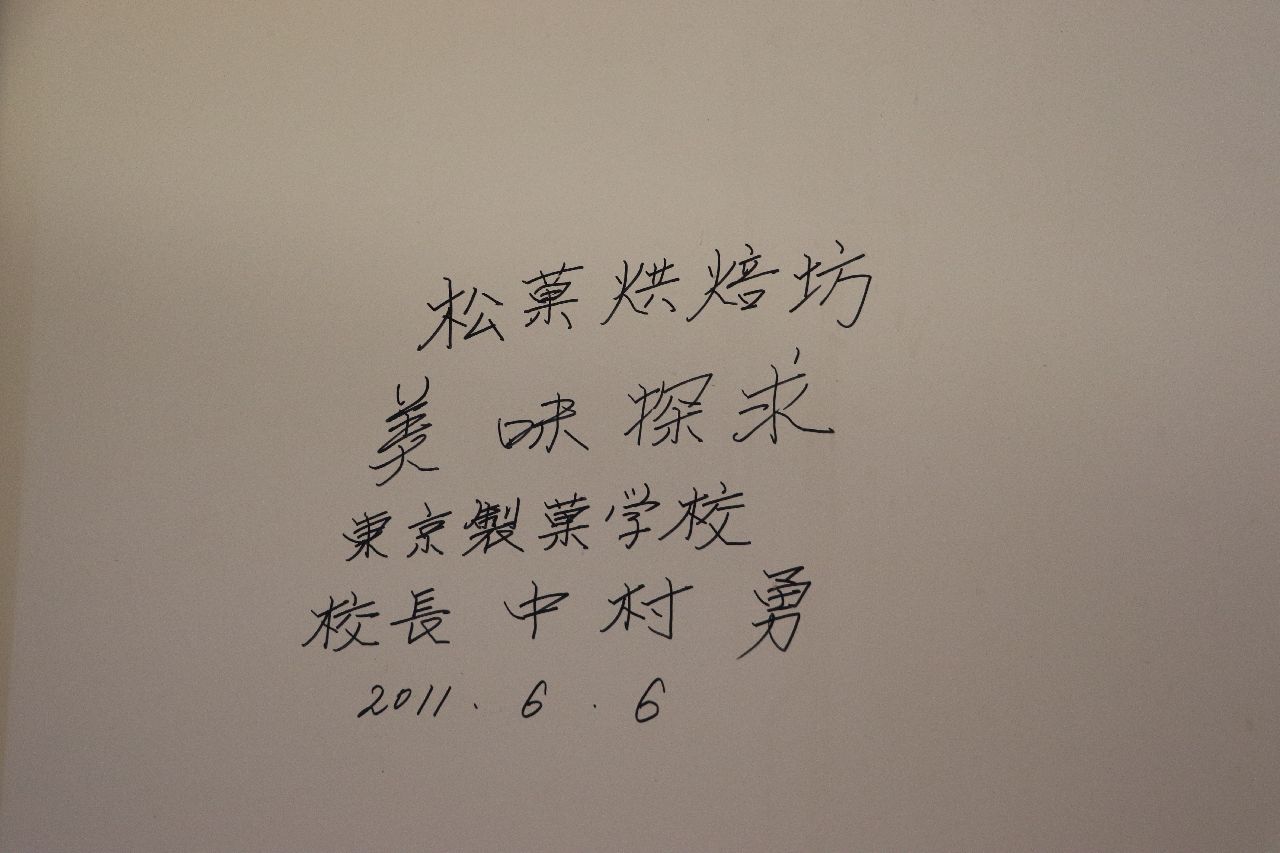 松菓烘焙坊
美味探求
東京製菓学校
校長 中村 勇
2011. 6. 6